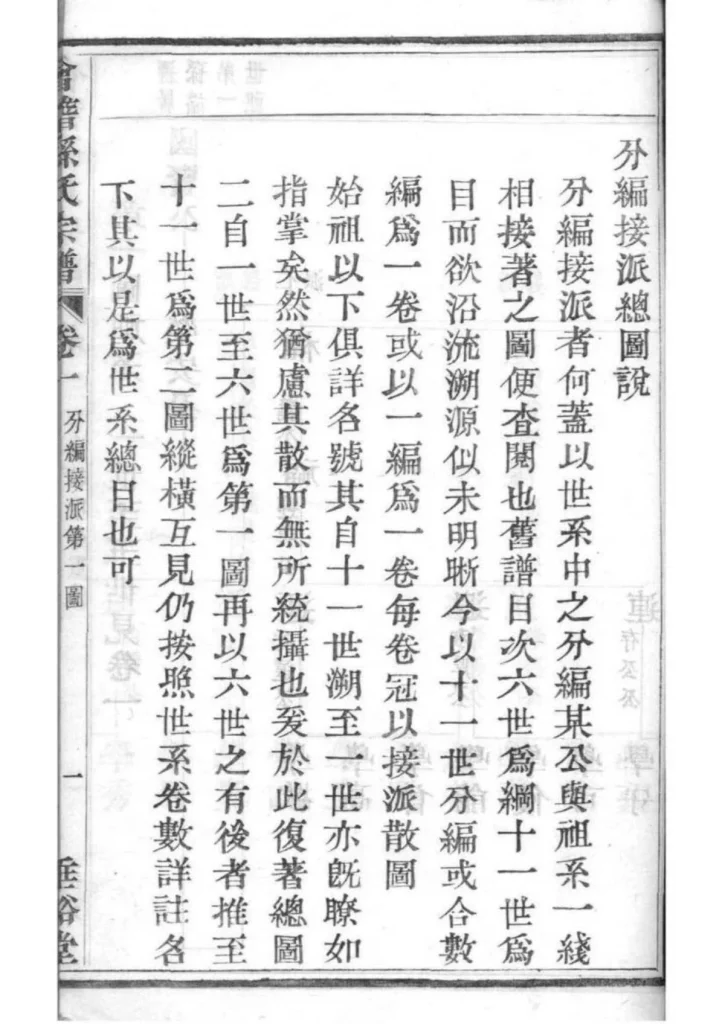 分編接派總圖說
分編接派者何蓋以世系中之分編某公與祖系一綫
相接著之圖便查閱也舊譜目次六世爲綱十一世爲
目而欲沿流溯源似未明晰今以十一世分編或合數
編爲一卷或以一編爲一卷每卷冠以接派散圖
始祖以下俱詳名號其自十一世溯至一世亦旣瞭如
指掌矣然猶慮其散而無所統攝也爰於此復著總圖
二自一世至六世爲第一圖再以六世之有後者推至
十一世爲第二圖縱橫互見仍按照世系卷數詳註名
下其以是爲世系總目也可
會稽孫氏宗譜 卷一 分編接派第一圖 一 垂裕堂